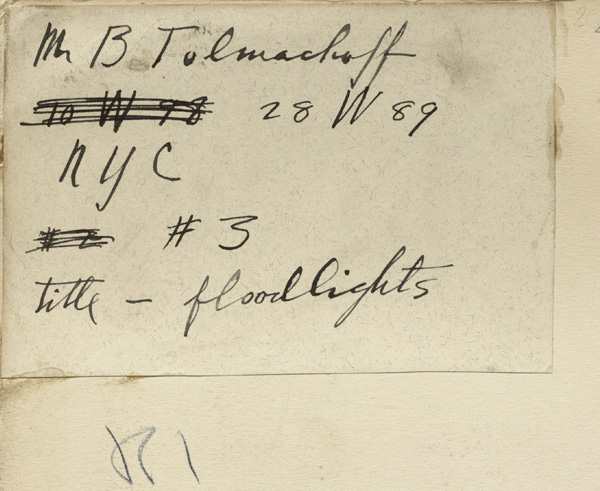 Mr B Tolmachoff
10 W 98 28 W 89
NYC
#2 #3
title - floodlights